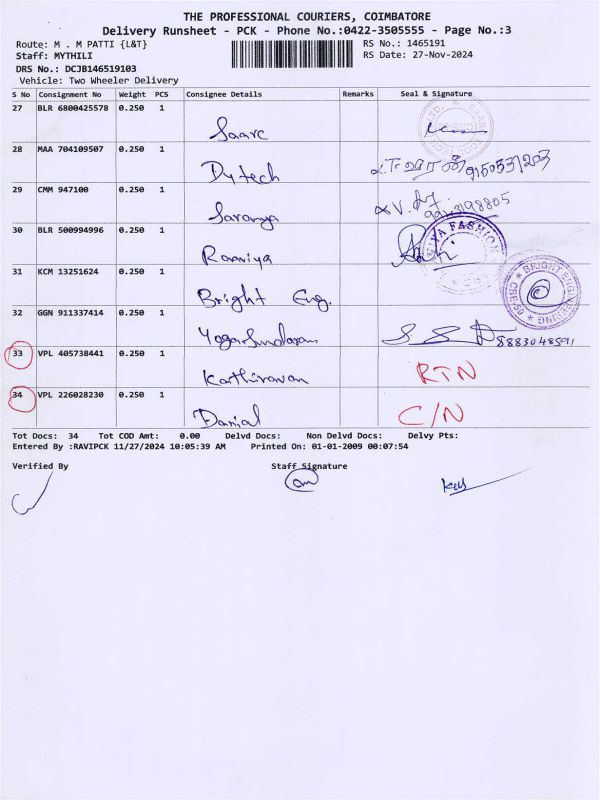 THE PROFESSIONAL COURIERS, COIMBATORE
Delivery Runsheet - PCK - Phone No.:0422-3505555 - Page No.:3
Route: M . M PATTI {L&T} RS No.: 1465191
Staff: MYTHILI RS Date: 27-Nov-2024
DRS No.: DCJB146519103
Vehicle: Two Wheeler Delivery
S No Consignment No Weight PCS Consignee Details Remarks Seal & Signature
27 BLR 6800425578 0.250 1
Saarc
28 MAA 704109507 0.250 1
Dytech 9150531203
29 CMM 947100 0.250 1
Saranya
30 BLR 500994996 0.250 1
Raaviya FASHION
31 KCM 13251624 0.250 1
Bright Eng. BRIGHT ENGINEERING
32 GGN 911337414 0.250 1
YogaSundaram
33 VPL 405738441 0.250 1
Kathiravan RTN
34 VPL 226028230 0.250 1
Danial C/N
Tot Docs: 34 Tot COD Amt: 0.00 Delvd Docs: Non Delvd Docs: Delvy Pts:
Entered By :RAVIPCK 11/27/2024 10:05:39 AM Printed On: 01-01-2009 00:07:54
Verified By Staff Signature